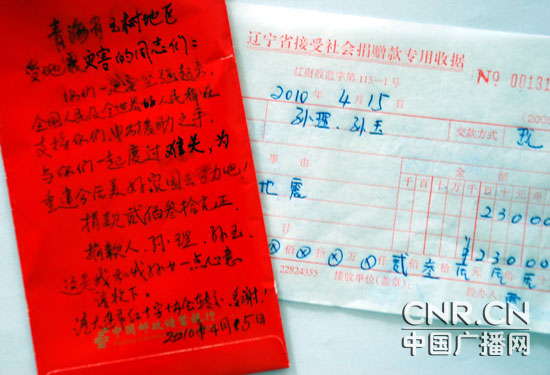 青海省玉树地区
受地震灾害的同志们:
你们一定要坚强起来,
全国人民及全世界的人民都在
支持你们伸出援助之手,
与你们一起度过难关,为
重建今后美好家园去努力吧!
捐款贰佰叁拾元正
捐款人 孙理 孙玉
这是我和我孙女一点心意
请收下
2010年4月15日
中国邮政储蓄银行
辽宁省接受社会捐赠款专用收据
辽财政监字第115-1号
№ 00131
2010 4 15
孙理、孙玉
交款方式
现
事由
金额
千百十万千百十元角
地震
23000
¥23000
佰 拾 万 仟 贰 叁
元
22824355
接收单位(盖章):
经办人
CNR.CN
中国广播网